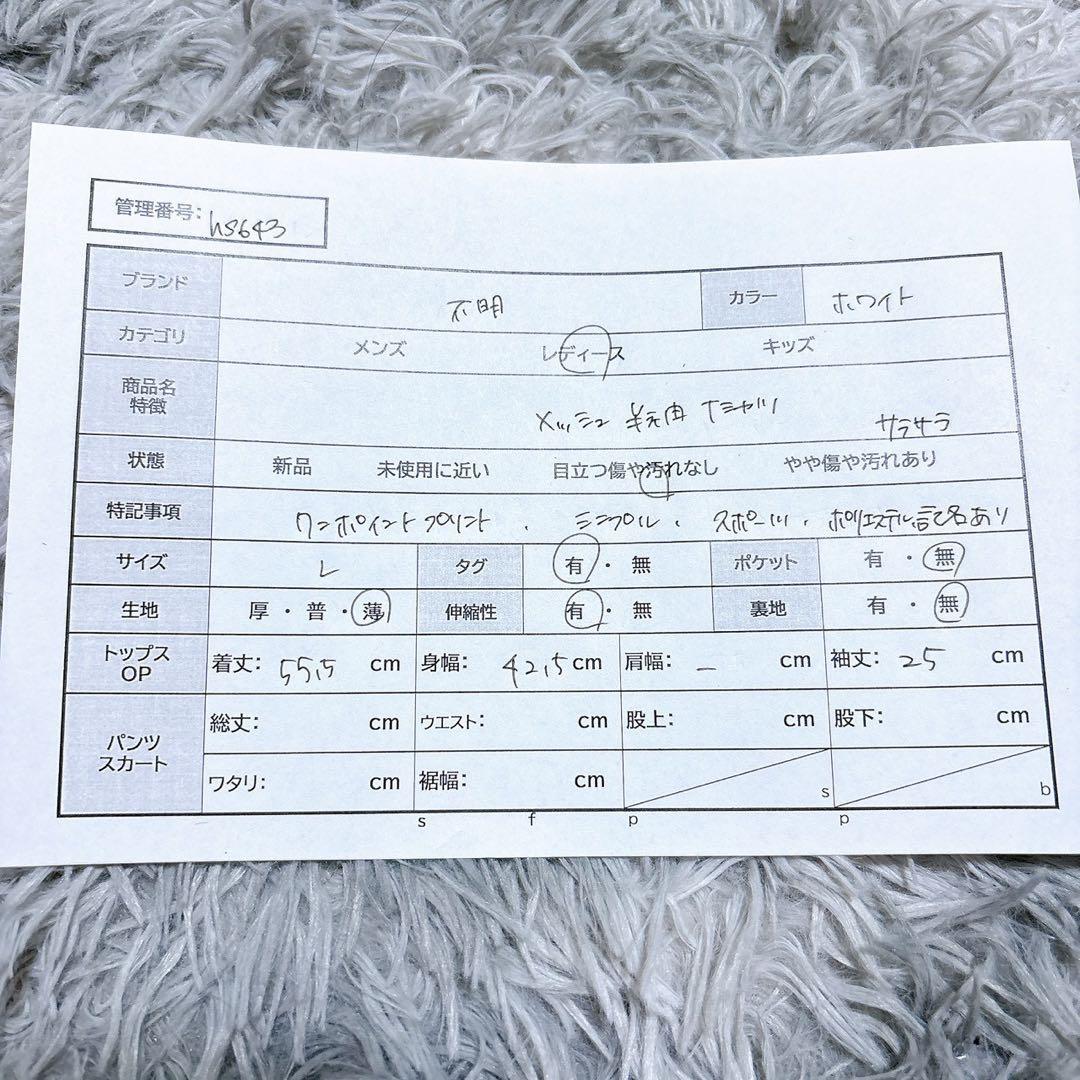 管理番号: hs643
ブランド 不明 カラー ホワイト
カテゴリ メンズ レディース キッズ
商品名 特徴 メッシュ 半袖 Tシャツ サラサラ
状態 新品 未使用に近い 目立つ傷や汚れなし やや傷や汚れあり
特記事項 ワンポイントプリント、シンプル、スポーツ、ポリエステル記名あり
サイズ L タグ 有・無 ポケット 有・無
生地 厚・普・薄 伸縮性 有・無 裏地 有・無
トップス OP 着丈: 55,5 cm 身幅: 42,5 cm 肩幅: ー cm 袖丈: 25 cm
パンツ スカート 総丈: cm ウエスト: cm 股上: cm 股下: cm
ワタリ: cm 裾幅: cm s b
s f p p